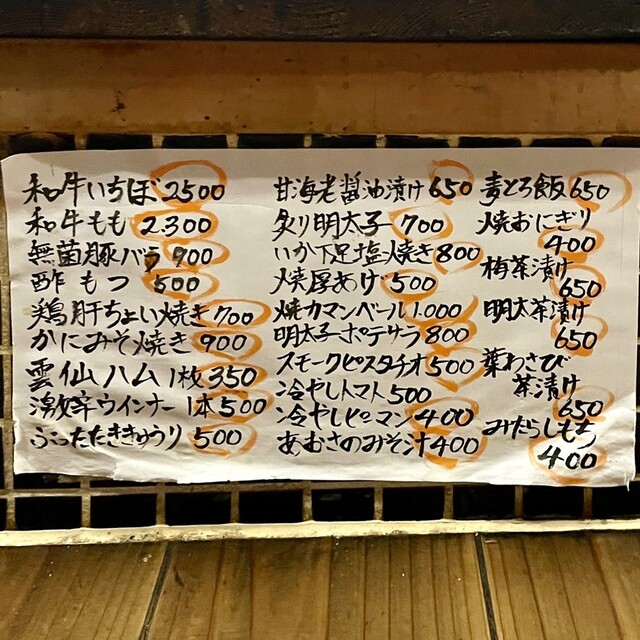 和牛いちぼ2500
和牛もも2.300
無菌豚バラ900
酢もつ500
鶏肝ちょい焼き700
かにみそ焼き900
雲仙ハム1枚350
激辛ウインナー1本500
ぶったたききゅうり500
甘海老醤油漬け650
炙り明太子700
いか下足塩焼き800
焼厚あげ500
焼カマンベール1.000
明太子ポテサラ800
スモークピスタチオ500
冷やしトマト500
冷やしピーマン400
あおさのみそ汁400
麦とろ飯650
焼おにぎり
400
梅茶漬け
650
明太茶漬け
650
葉わさび
茶漬け
650
みだらしもち
400